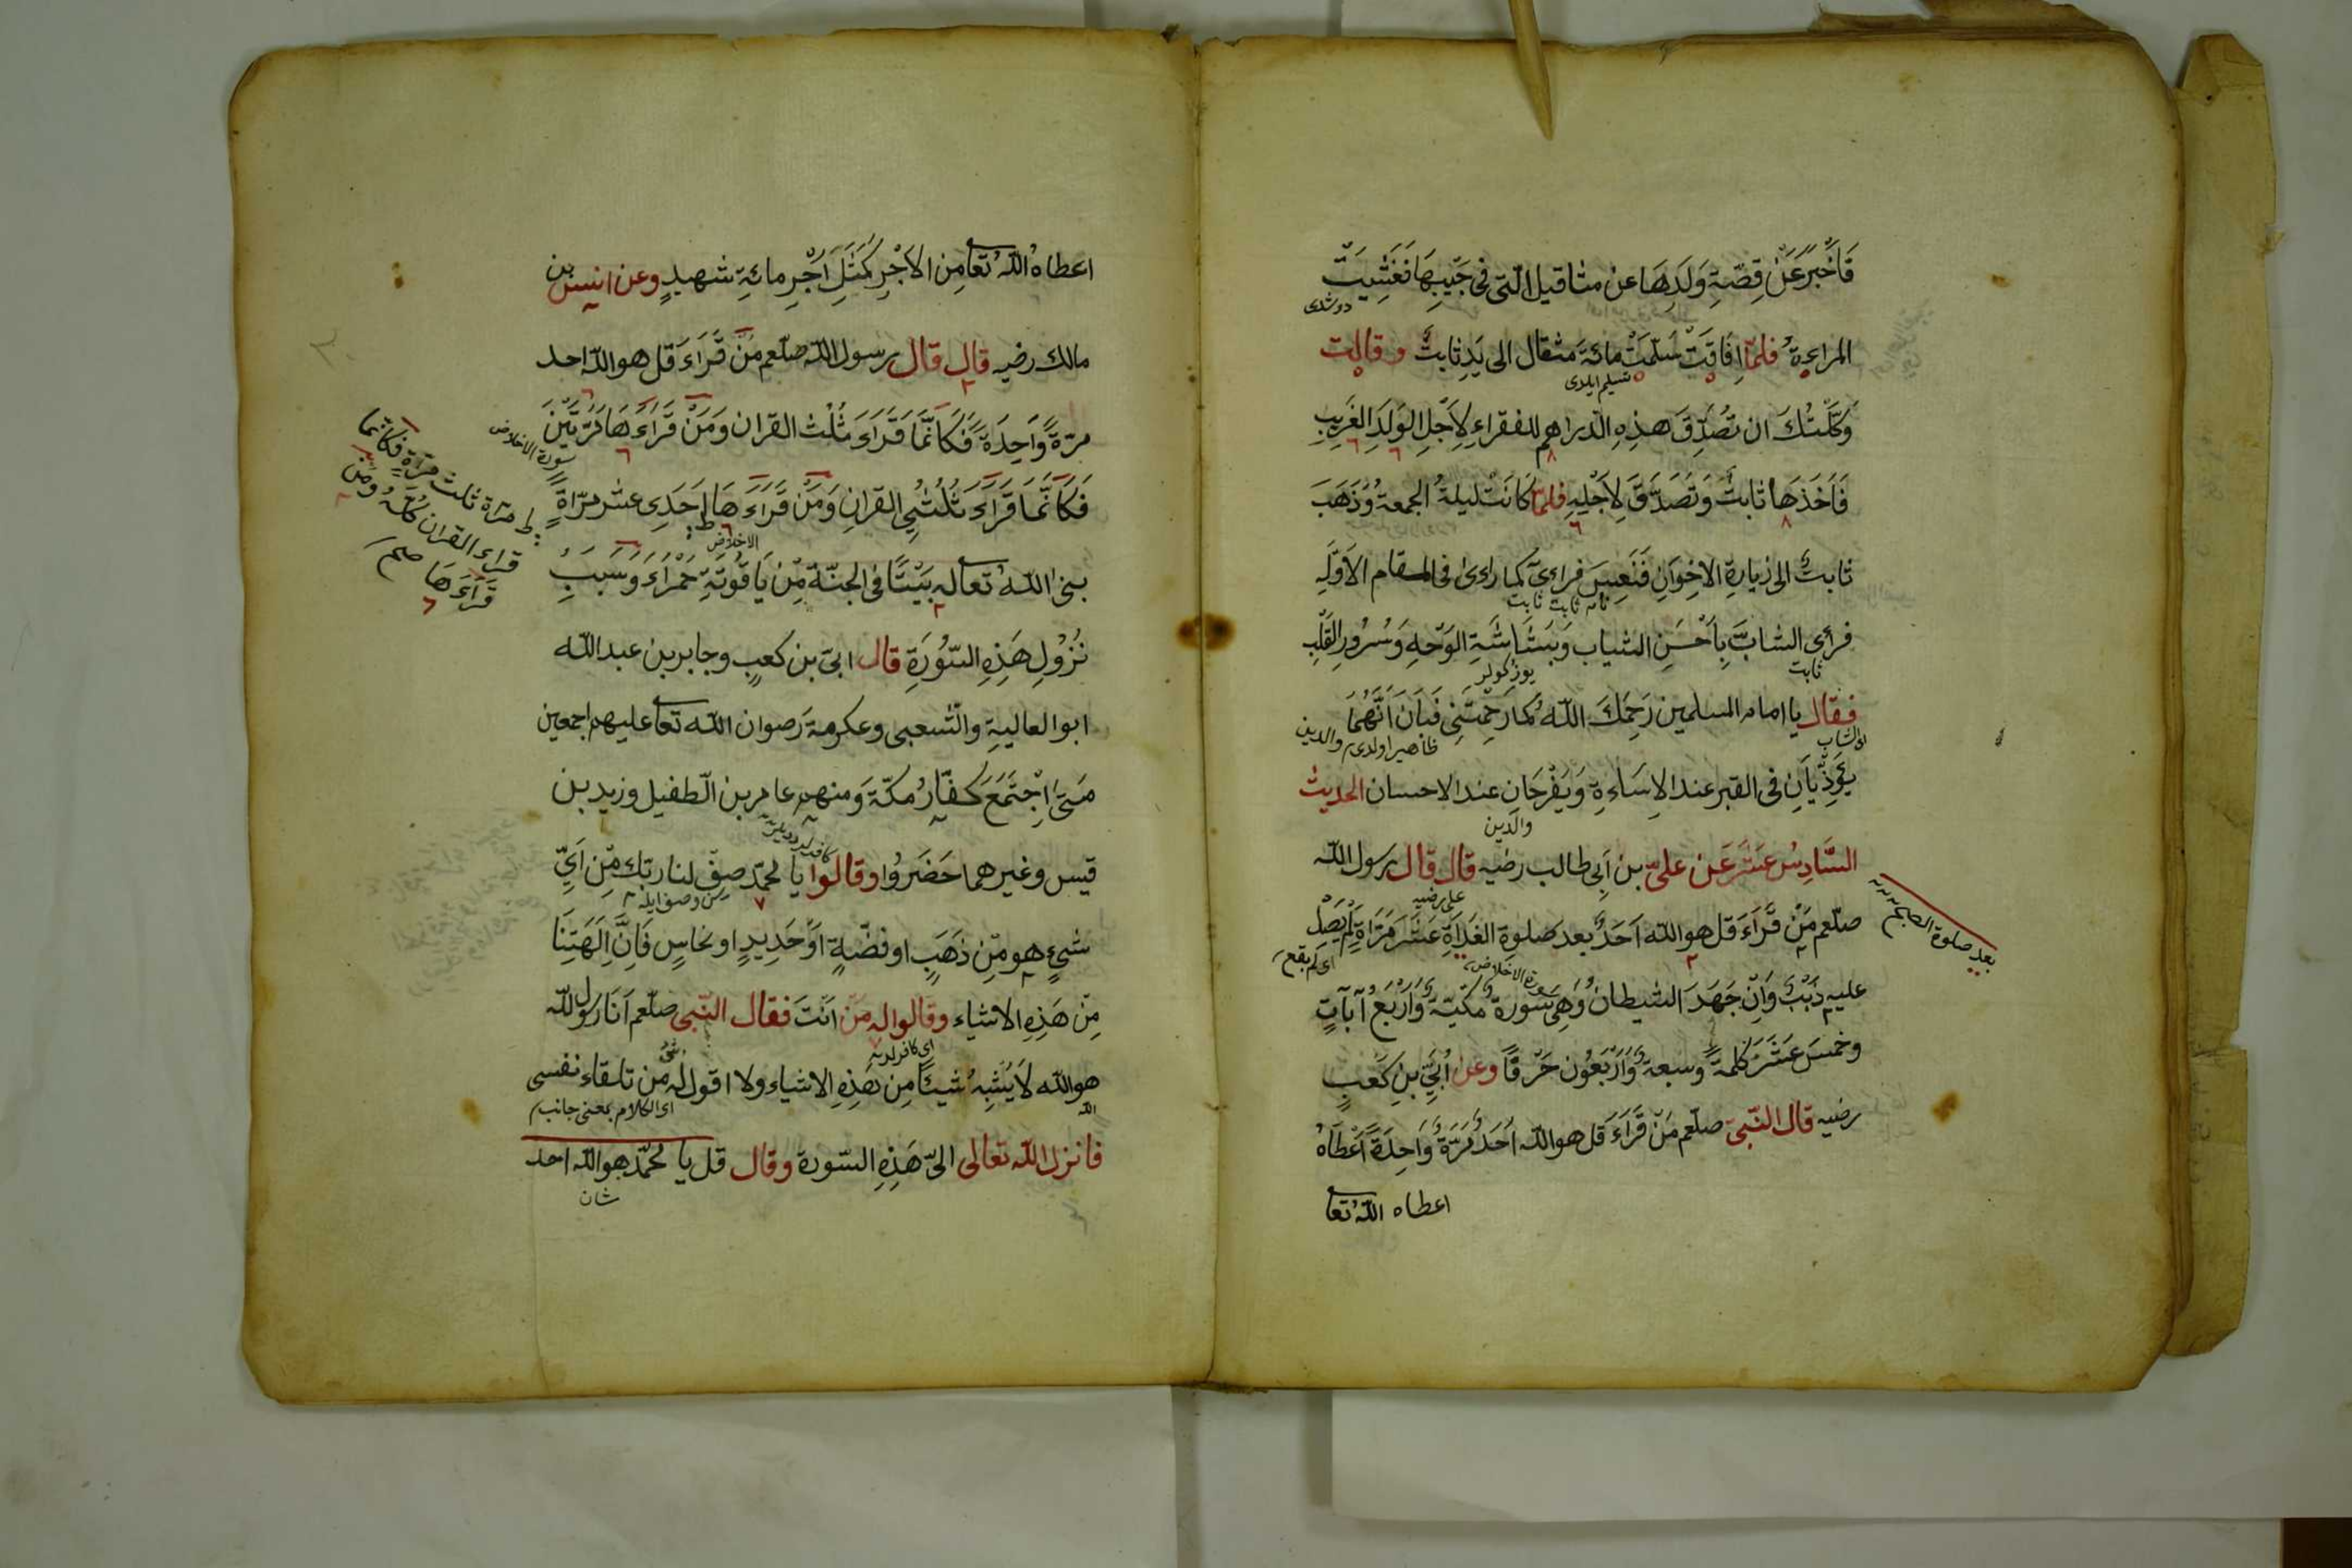 فَاَخْبَرَ عَنْ قِصَّةِ وَلَدِهَا عن مثاقيل الّتى فى جَيْبِهَا فَغَشِيَتْ
دوشدى
المراءة فلمّا اِفَاقَتْ سَلَّمَتْ مائةَ مثقال الى يَدِ ثابتٍ وقالت
تسليم ايلدى
وَكَّلْتُكَ ان تصُدِّقَ هذِهِ الدّراهم للفقراءِ لِاَجْلِ الوَلَدِ الغَرِيبِ
فَاَخَذَهَا ثابتٌ وَتَصَدَّقَ لِاَجْلِهِ فلمّا كَانَتْ ليلةُ الجمعةُ وَذَهَبَ
ثابتٌ الى زيارةِ الاخِوَانِ فَنَعِسَ فراءىَ كما راءى فى المقام الاَوَّلِ
ثابت ثابت
فرأى الشابَّ بِاَحْسَنِ الثياب وَبَشَاشَةِ الوَجْهِ وَسُرُورِ القَلْبِ
ثابت
يوزكولر
فقال يا امام المسلمين رَحِمَكَ اللّهُ كما رَحِمْتَنِى فَبَانَ اَنَّهُمَا
اى الشاب
ظاهر اولدى والدين
يُؤَذِّيَانِ فى القبر عند الاِسَاءةِ وَيَفْرَحَانِ عند الاحسان الحديث
والدين
السَّادِسُ عَشَرَ عَن علىّ بن اَبِى طالب رضيه قال قال رسول اللّه
على رضيه
صلّعم مَنْ قَرَاءَ قل هو اللّه اَحَدٌ بعد صَلوةِ الغَدَاةِ عَشَرَ مَرَاةٍ لَمْ يَصِلْ
بعد صلوة الصبح
اى لم يقع
سورة الاخلاص
عليه ذَنْبٌ وَاِنْ جَهَدَ الشيطان وَهِىَ سُورةٌ مكّيّةٌ وَاَرْبَعُ آيَاتٍ
وخمسَ عَشَرَ كلمةً وسبعةٌ وَاَرْبَعُون حَرْفًا وعن اُبَىِّ بنِ كَعْبٍ
رضيه قال النّبىّ صلّعم مَنْ قَرَاءَ قل هو اللّه اَحَدٌ مَرَّةً وَاحِدَةً اَعْطَاهُ
اعطاه اللّه تعا
اعطاه اللّهُ تعا مِن الاَجْرِ كَمَثَلِ اَجْرِ مائةِ شهيدٍ وعن انيس بن
مالك رضيه قال قال رسول اللّه صلّعم مَنْ قَرَاءَ قل هو اللّه احد
مرّةً وَاحِدَةً فَكَانَّمَا قَرَاءَ ثُلُثَ القران وَمَنْ قَرَاءَهَا مَرَّتَيْنِ
سورة الاخلاص
فَكَانَّمَا قَرَاءَ ثُلُثَىِ القرانِ وَمَنْ قَرَاءَهَا اَحَدِى عشر مرّاةٍ
الاخلاص
مرّة ثلث مرّاةٍ فكانّما
قراء القران كلّهُ ومَن
قَرَاءَهَا صح
بنى اللّهُ تعا له بَيْتًا فى الجنّة مِّن يَاقُوتَةٍ حَمْرَاءَ وَسَبَبِ
نُزُولِ هَذِهِ السُّورَةِ قال ابىّ بن كعبٍ وجابر بن عبد اللّه
ابوا العاليةِ والشعبى وعكرمة رَضوان اللّه تعا عليهم اجمعين
مَتَى اِجْتَمَعَ كفّارُ مكّةَ ومنهم عامر بن الطّفيل وزيد بن
قيس وغيرهما حَضَرُوا وقالوا يا محمّد صِفْ لنا ربّك مِّن اَىِّ
سن وصف ايله
شىءٍ هو مِّن ذَهَبٍ او فضّةٍ اَوْ حَدِيدٍ او نحاسٍ فَاِنَّ اِلَهَتِنَا
مِنْ هَذِهِ الاشياء وقالوا له مَن اَنْتَ فقال النّبى صلّعم اَنَا رسول للّه
اى كافرلر
هو اللّه لَا يُشْبِهُ شيئًا مِن هَذِهِ الاشياء ولا اقول له من تلقاء نفسى
اللّه
اى الكلام بمعنى جانب
فانزل اللّه تعالى الىّ هَذِهِ السّورة وقال قل يا محمّد هو اللّه احد
شان